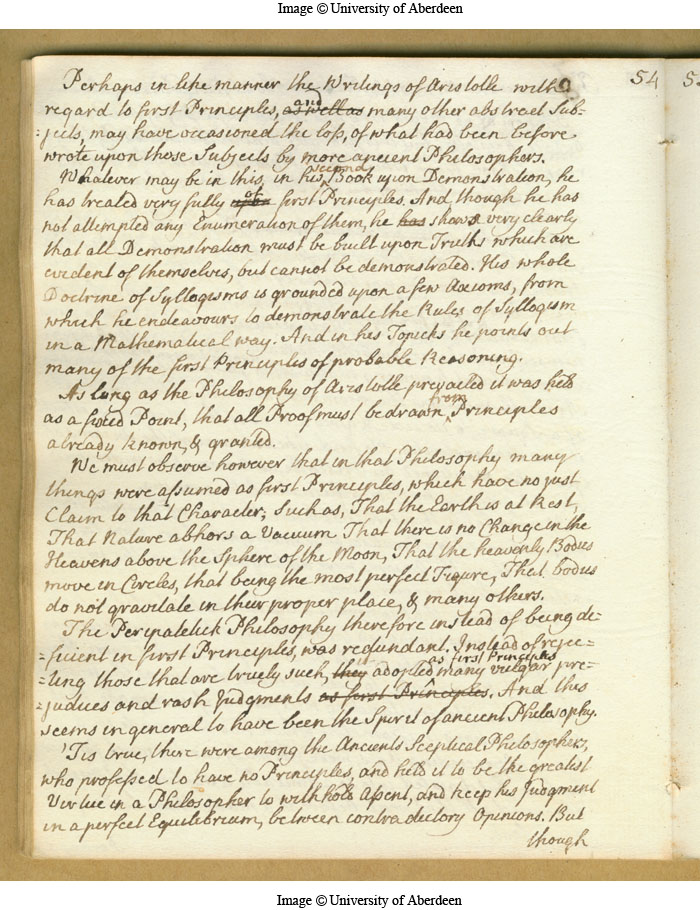 Image © University of Aberdeen
54
Perhaps in like manner the Writings of Aristotle with
regard to first Principles, as well as and many other abstract Sub-
-jects, may have occasioned the loss, of what had been before
wrote upon those Subjects by more ancient Philosophers.
Whatever may be in this, in his second Book upon Demonstration, he
has treated very fully upon of first Principles. And though he has
not attempted any Enumeration of them, he has shows very clearly
that all Demonstration must be built upon Truths which are
evident of themselves, but cannot be demonstrated. His whole
Doctrine of Syllogisms is grounded upon a few Axioms, from
which he endeavours to demonstrate the Rules of Syllogism
in a Mathematical way. And in his Topicks he points out
many of the first Principles of probable Reasoning.
As long as the Philosophy of Aristotle prevailed it was held
as a fixed Point, that all Proof must be drawn from Principles
already known, & granted.
We must observe however that in that Philosophy many
things were assumed as first Principles, which have no just
Claim to that Character; Such as, That the Earth is at Rest,
That Nature abhors a Vacuum That there is no Change in the
Heavens above the Sphere of the Moon, That the heavenly Bodies
move in Circles, that being the most perfect Figure, That bodies
do not gravitate in their proper place, & many others.
The Peripatetick Philosophy therefore instead of being de-
-ficient in first Principles, was redundant. Instead of rejec-
-ting those that are truely such, they it adopted as first Principles many vulgar pre-
-judices and rash Judgments as first Principles. And this
seems in general to have been the Spirit of ancient Philosophy.
'Tis true, there were among the Ancients Sceptical Philosophers,
who professed to have no Principles, and held it to be the greatest
Virtue in a Philosopher to withhold Assent, and keep his Judgment
in a perfect Equilibrium, between contradictory Opinions. But
though
Image © University of Aberdeen